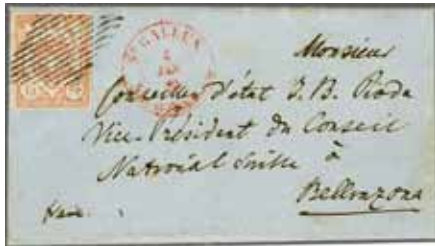 St GALLEN
5
JAN
Monsieur
Conseiller d'état J. B. Pioda
Vice-Président du Conseil
National Suisse à
Bellinzona